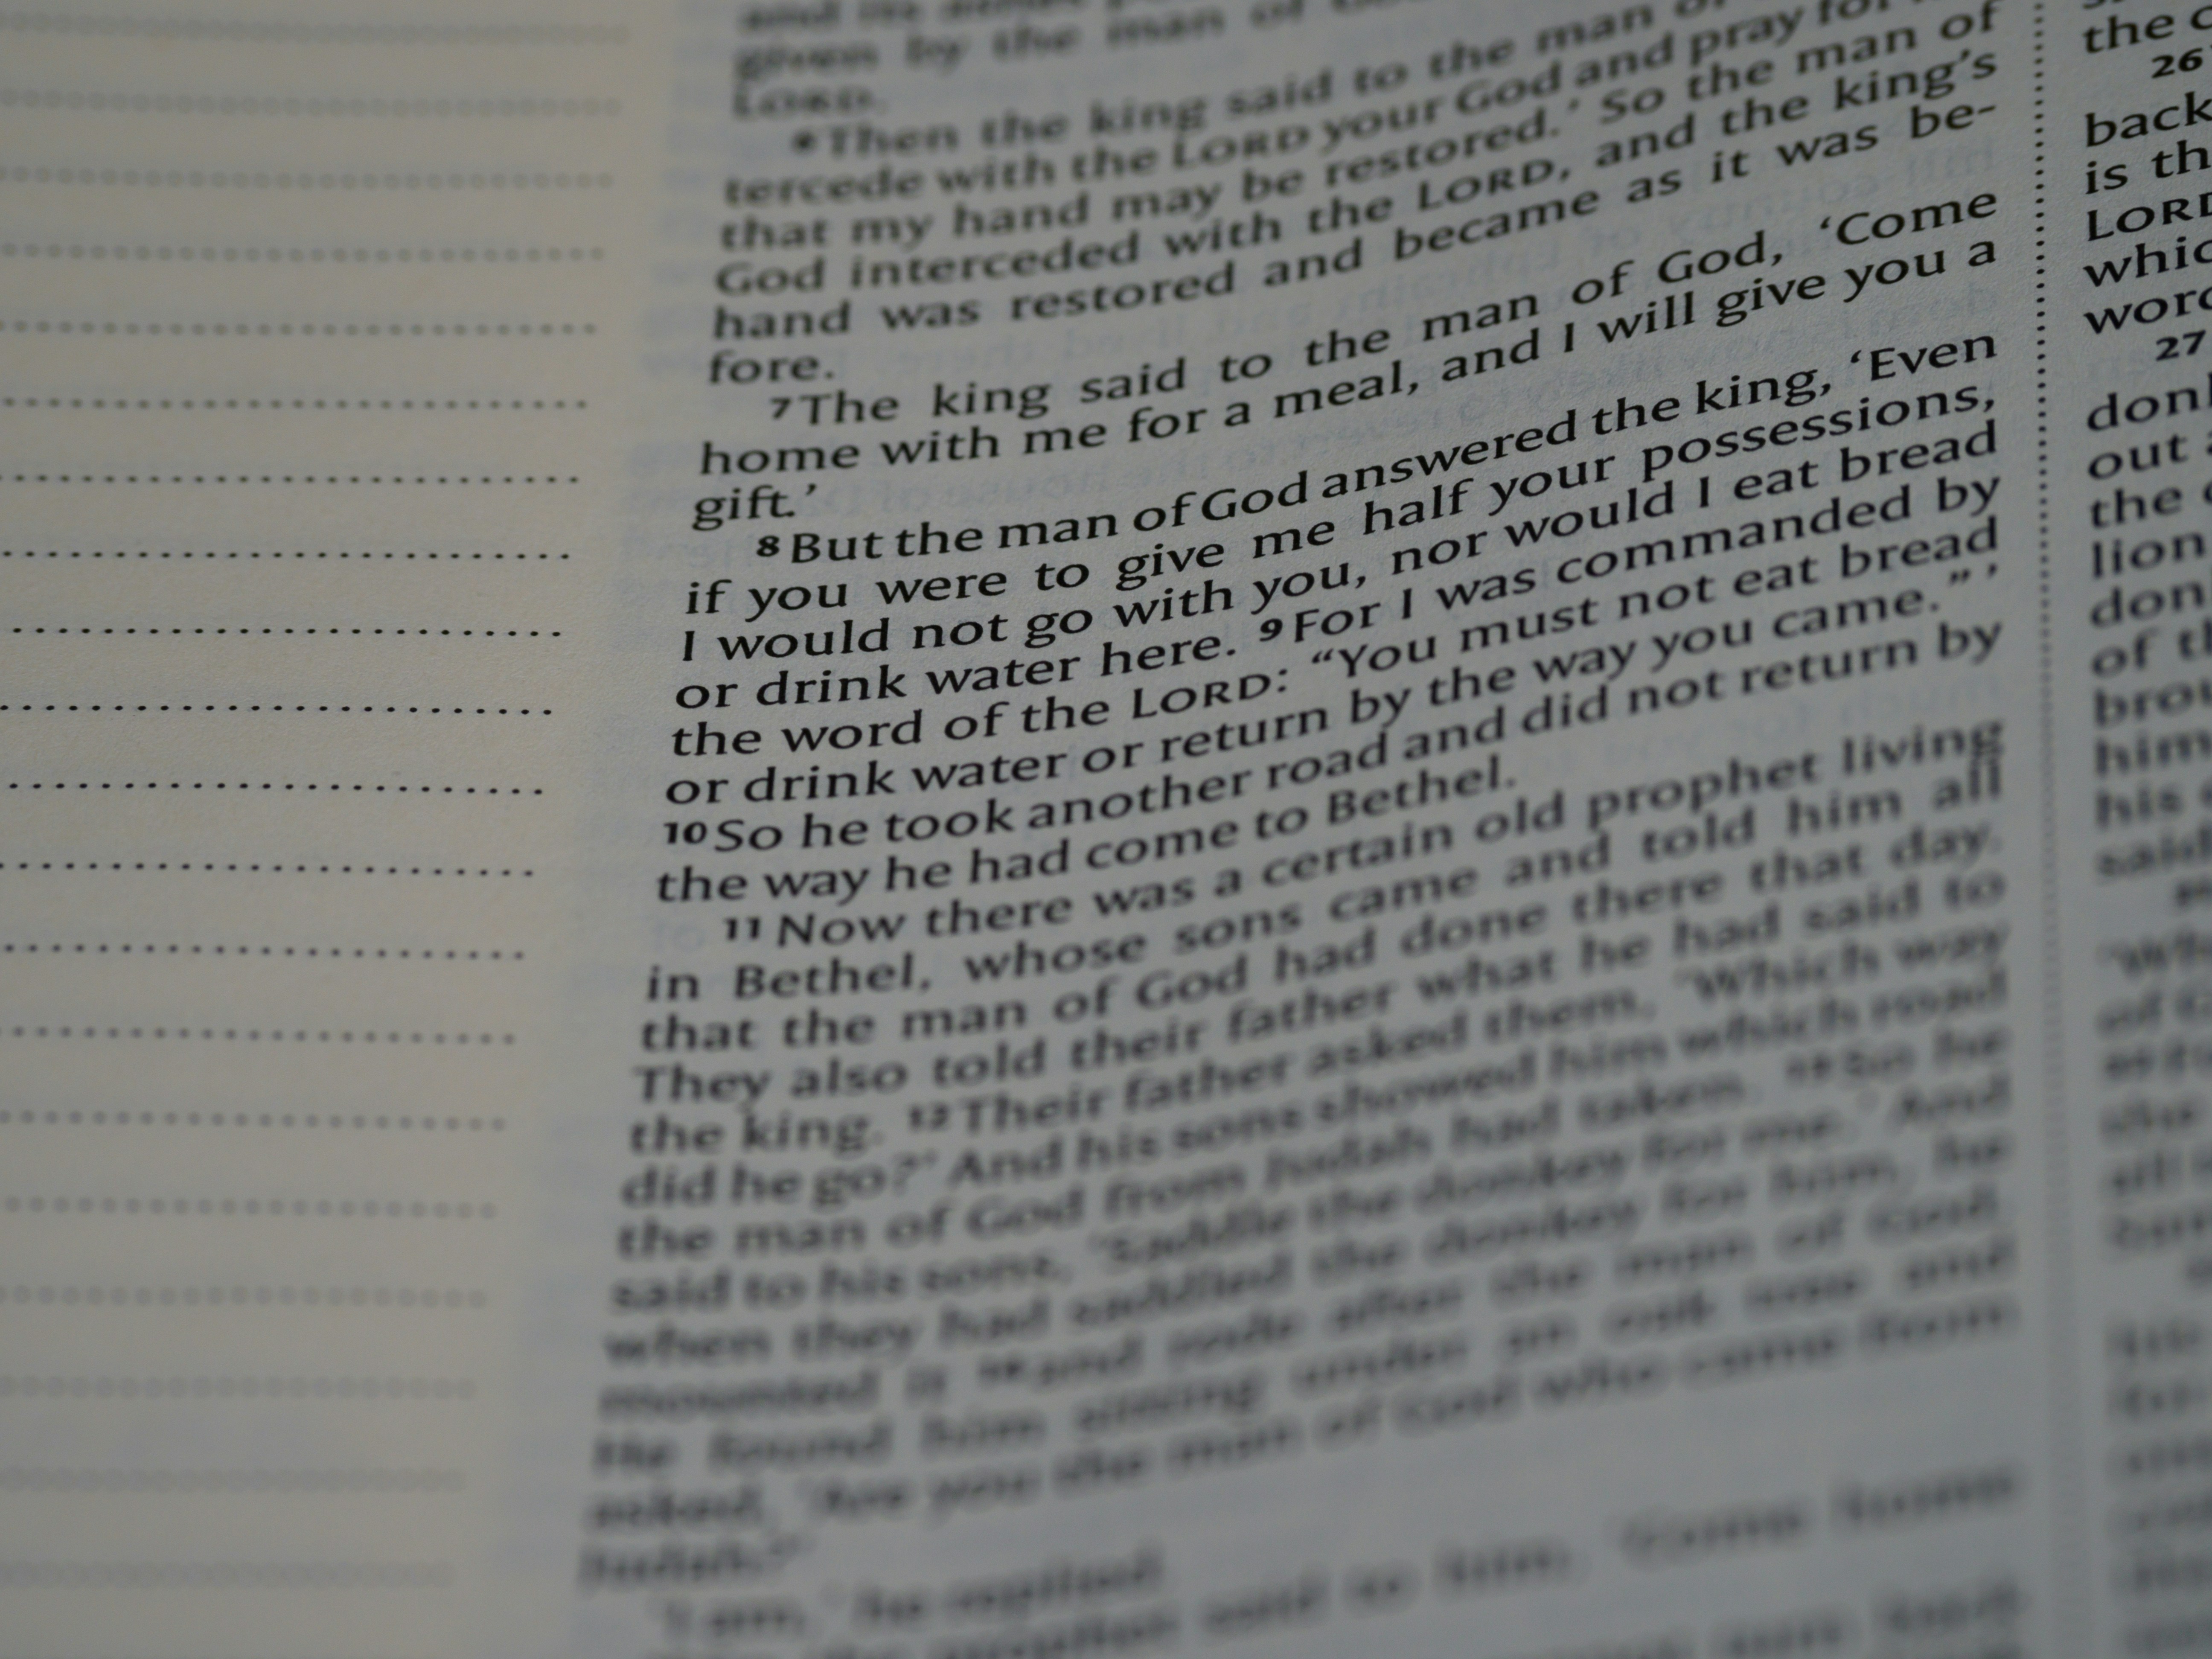 given by the man of
LORD.
6 Then the king said to the man of
tercede with the LORD your God and pray for
that my hand may be restored.’ So the man of
God interceded with the LORD, and the king’s
hand was restored and became as it was be-
fore.
7 The king said to the man of God, ‘Come
home with me for a meal, and I will give you a
gift.’
8 But the man of God answered the king, ‘Even
if you were to give me half your possessions,
I would not go with you, nor would I eat bread
or drink water here. 9 For I was commanded by
the word of the LORD: “You must not eat bread
or drink water or return by the way you came.” ’
10 So he took another road and did not return by
the way he had come to Bethel.
11 Now there was a certain old prophet living
in Bethel, whose sons came and told him all
that the man of God had done there that day.
They also told their father what he had said to
the king. 12 Their father asked them, ‘Which way
did he go?’ And his sons showed him which road
the man of God from Judah had taken. 13 So he
said to his sons, ‘Saddle the donkey for me.’ And
when they had saddled the donkey for him, he
mounted it 14 and rode after the man of God.
He found him sitting under an oak tree and
asked, ‘Are you the man of God who came from
Judah?’
‘I am,’ he replied.
said to him, ‘Come home
the
26
back
is th
LORD
whic
word
27
donk
out
the
lion
don
of th
brou
him
his
said